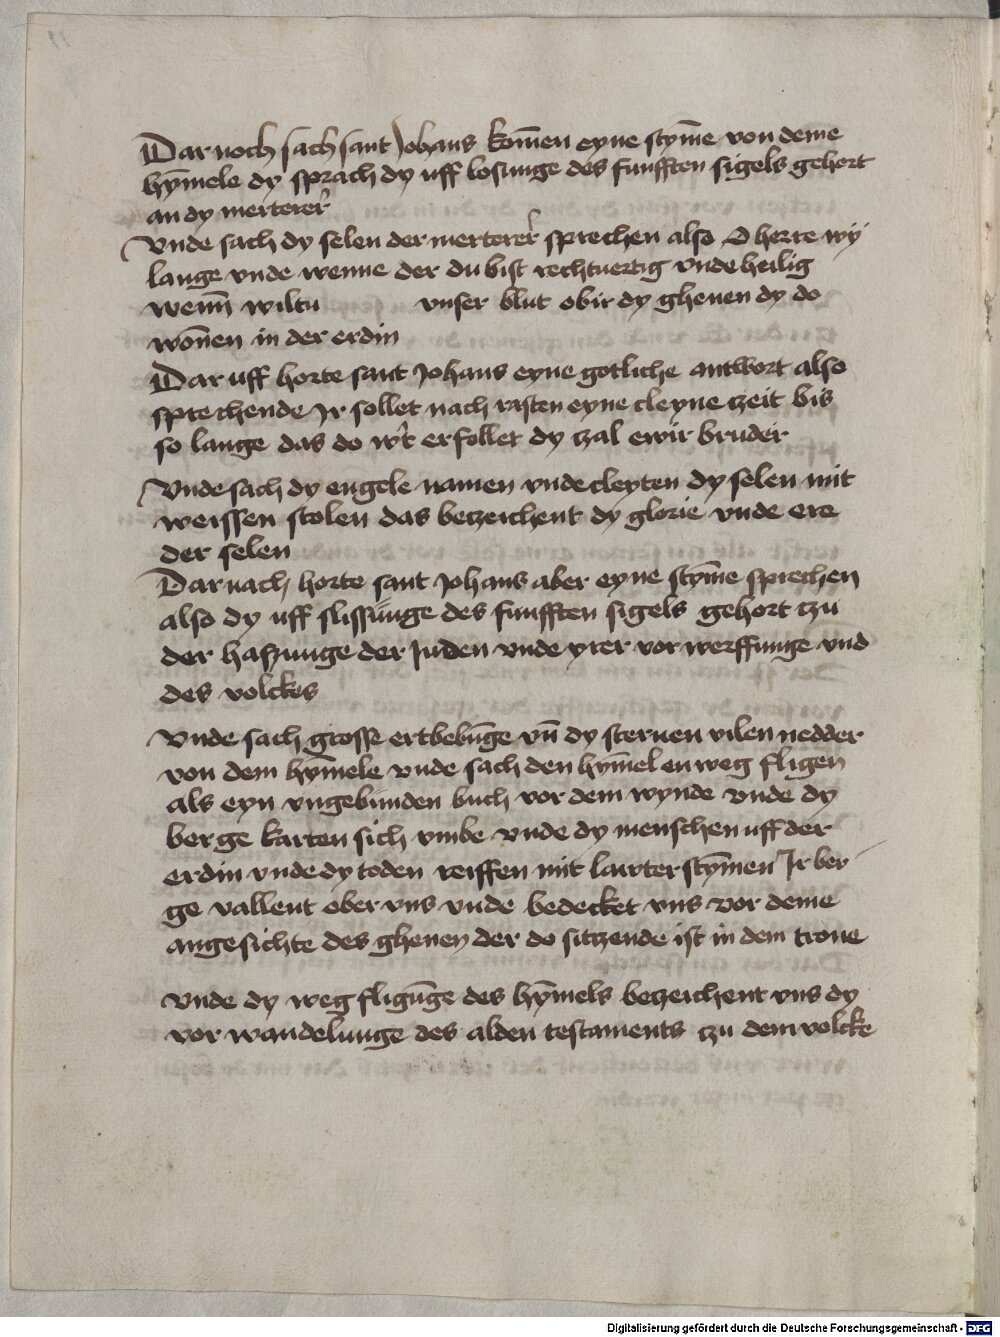 Dar noch sach sant Johans kom̄en eyne stym̄e von deme
hym̄ele dy sprach dy uff losunge des funfften sigels gehort
an dy merterer
Vnde sach dy selen der merterer sprechen also O herre wy
lange vnde wenne der du bist rechtuertig vnde heilig
wenn̄ wiltu unser blut obir dy ghenen dy do
won̄en in der erdin
Dar uff horte sant Johans eyne gotliche antwort also
sprechende Jr sollet nach rasten eyne cleyne czeit bis
so lange das do w't erfollet dy czal ewir bruder
Vnde sach dy engele namen vnde cleyten dy selen mit
weissen stolen das beczeichent dy glorie vnde ere
der selen
Dar nach horte sant Johans aber eyne stym̄e sprechen
also dy uff slissunge des funfften sigels gehort czu
der haszunge der Juden vnde yrer vor werffunge vnd
des volckes
Vnde sach grosse ertbebūge vn̄ dy sternen vilen nedder
von dem hym̄ele vnde sach den hym̄el en weg fligen
als eyn vngebunden buch vor dem wynde vnde dy
berge karten sich vmbe vnde dy menschen uff der
erdin vnde dy toden reiffen mit lawter stym̄en Jr ber
ge vallent ober vns vnde bedecket vns vor deme
angesichte des ghenen der do sitzende ist in dem trone
Vnde dy weg fligūge des hym̄els beczeichent vns dy
vor wandelunge des alden testaments czu dem volcke
Digitalisierung gefördert durch die Deutsche Forschungsgemeinschaft - DFG